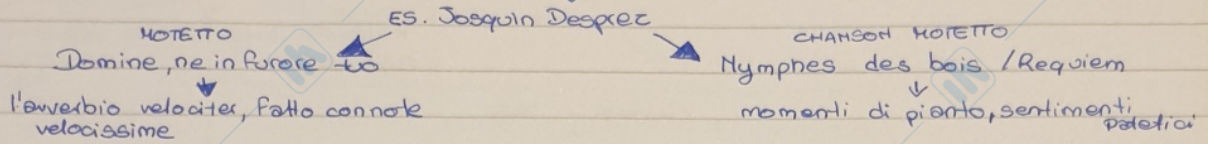 ES. Josquin Desprez
MOTETTO
Domine, ne in furore tuo
l'avverbio velociter, fatto con note
velocissime
CHANSON MOTETTO
Nymphes des bois / Requiem
momenti di pianto, sentimenti
patetici